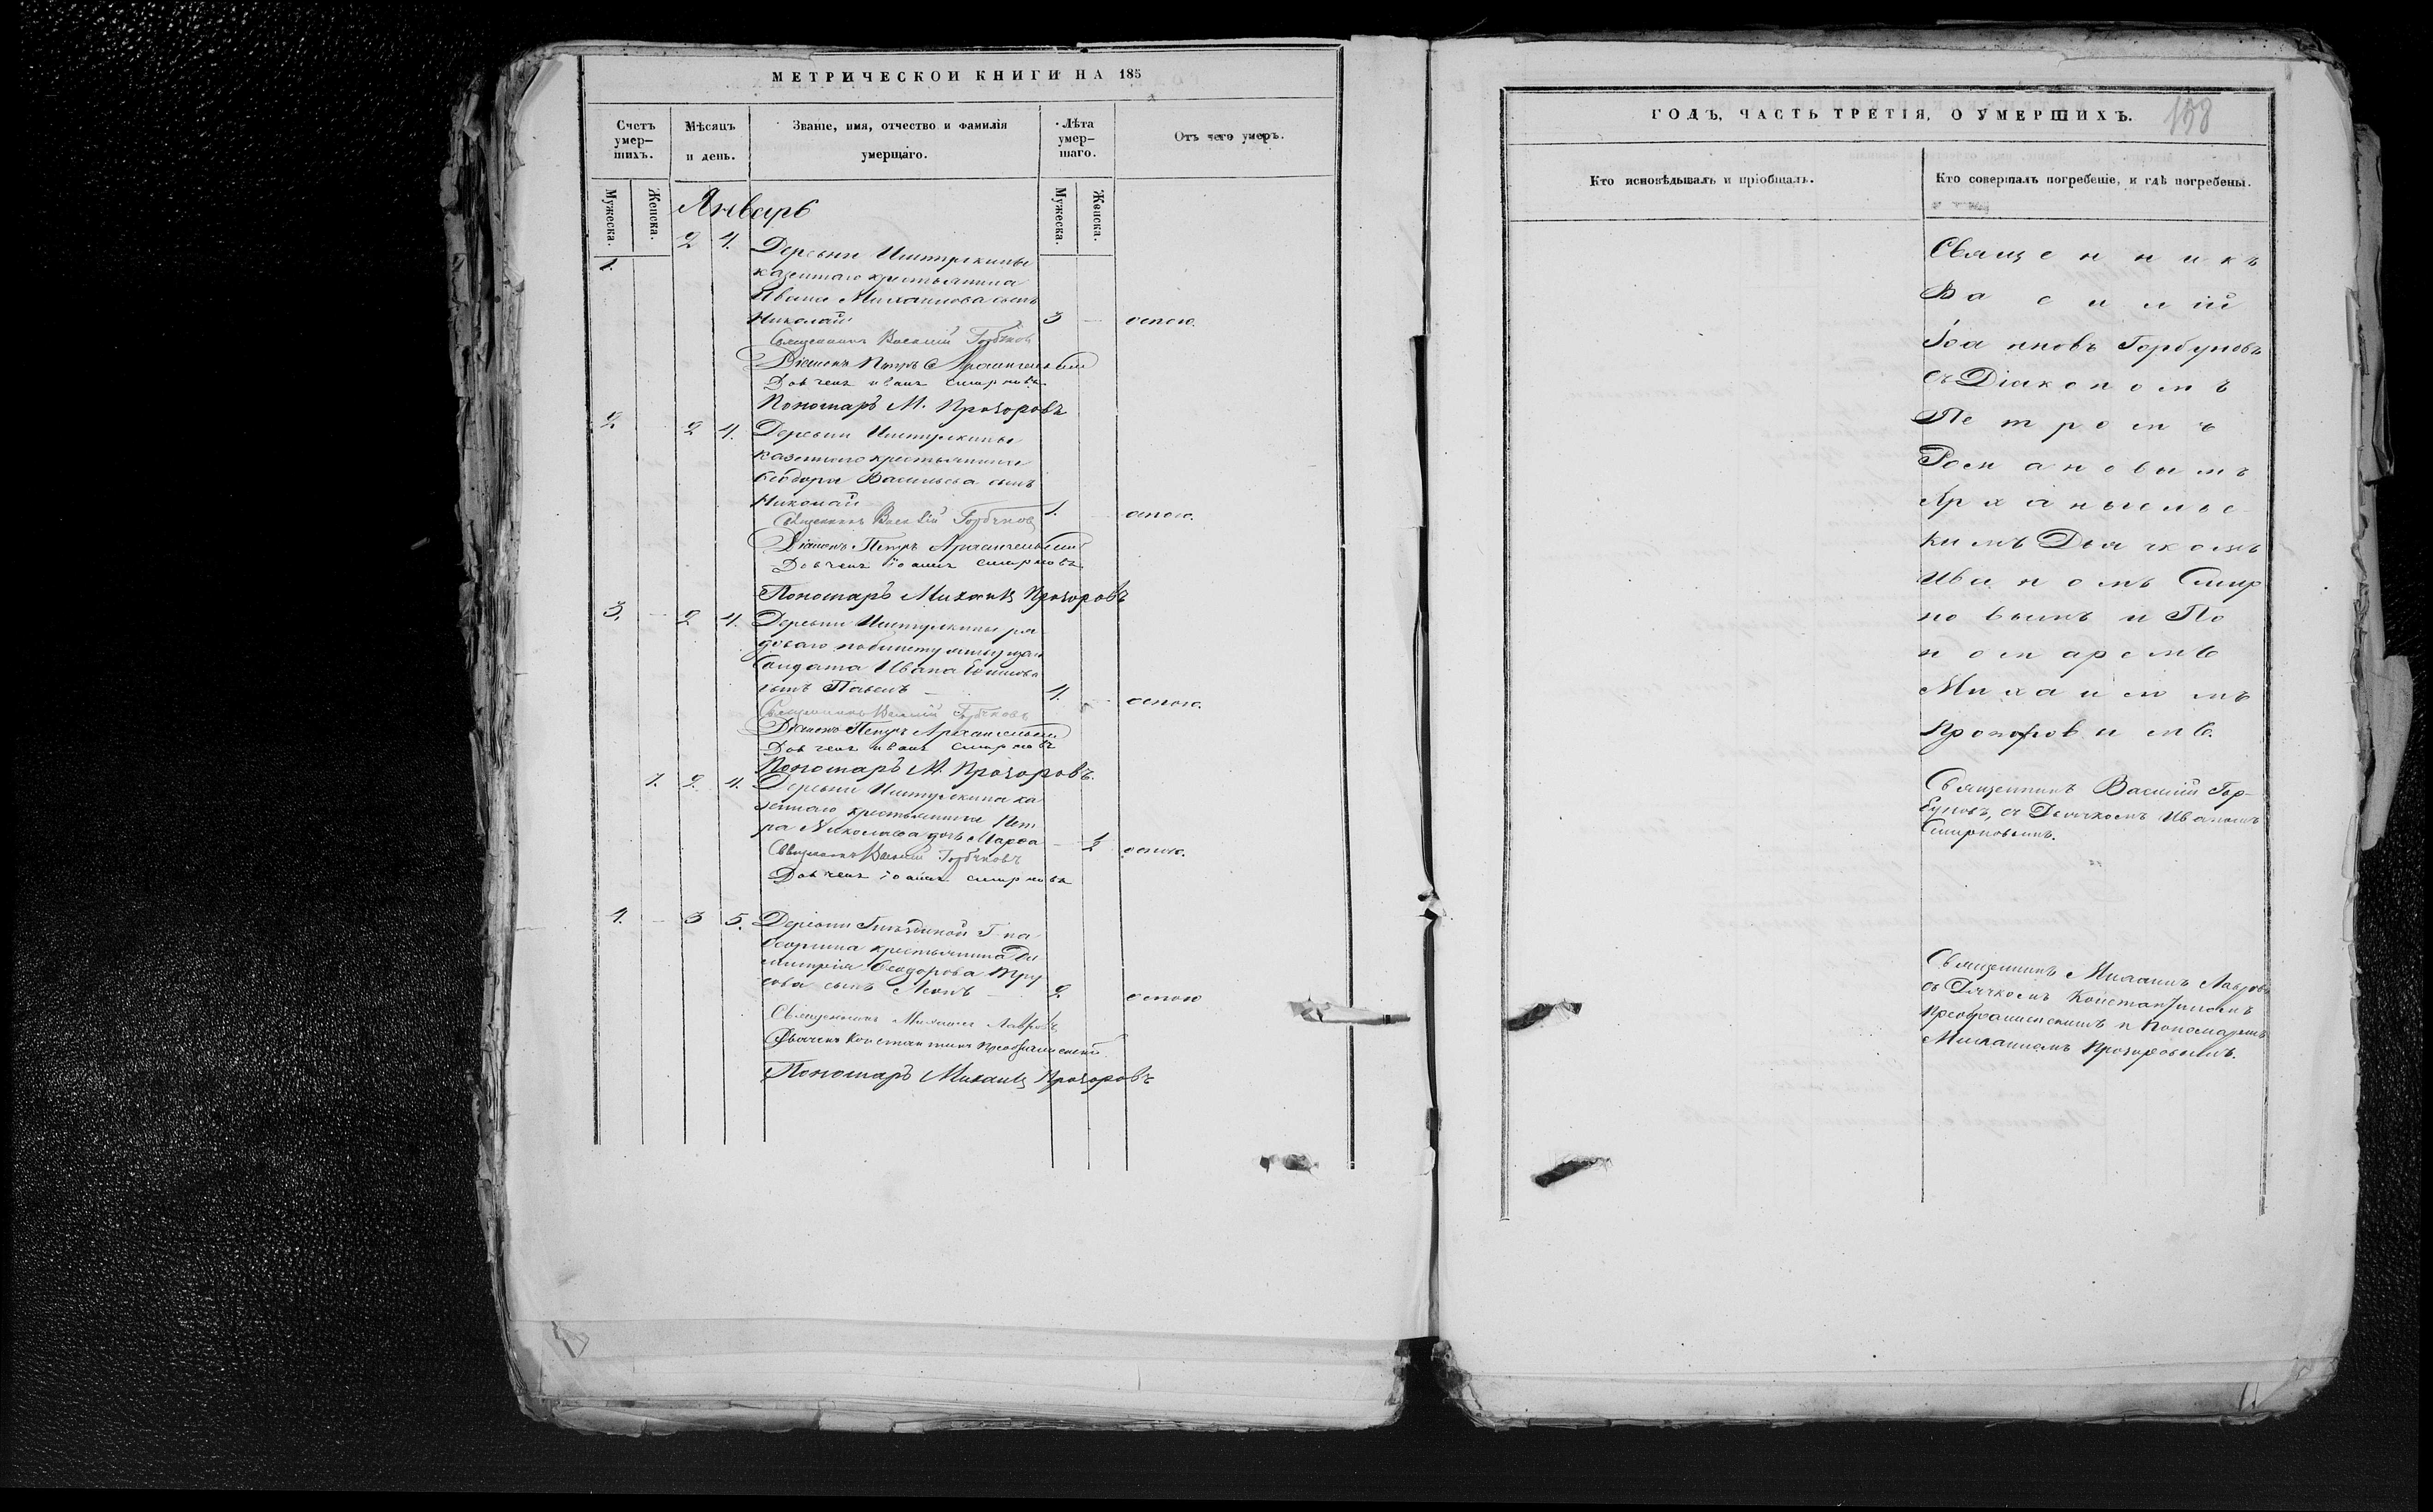 МЕТРИЧЕСКОЙ КНИГИ НА 185
Счетъ умер-шихъ.
Мѣсяцъ и день.
Званіе, имя, отчество и фамилія умершаго.
Лѣта умер-шаго.
Отъ чего умеръ.
Мужеска.
Женска.
Мужеска.
Женска.
Январь
1. 2 4. Деревни
казеннаго крестьянина
Ивана Михаилова сынъ
Николай 3 — оспою.
Священникъ Василий Горбуновъ
Діаконъ Петръ Архангельскій
Дьячекъ Иванъ Смирновъ
Пономарь М. Прозоровъ
2 — 2 4. Деревни
казеннаго крестьянина
Ѳеодора Васильева сынъ
Николай 1. — оспою.
Священникъ Василій Горбуновъ
Діаконъ Петръ Архангельскій
Дьячекъ Іоаннъ Смирновъ
Пономарь Михаилъ Прозоровъ
3. — 2 4. Деревни
Солдата Ивана
сынъ Павелъ — 4. — оспою.
Священникъ Василій Горбуновъ
Діаконъ Петръ Архангельскій
Дьячекъ Иванъ Смирновъ
Пономарь М. Прозоровъ.
1. 2. 4. Деревни ка
зеннаго крестьянина Пет
ра Николаева дочь Марѳа — 2 оспою.
Священникъ Василій Горбуновъ
Дьячекъ Іоаннъ Смирновъ
4. — 3 5. Деревни Г-на
крестьянина Ди
митрія Ѳеодорова
сынъ — 2. оспою
Священникъ Михаилъ Лавровъ
Дьячекъ Константинъ Преображенскій
Пономарь Михаилъ Прозоровъ
ГОДЪ, ЧАСТЬ ТРЕТІЯ, О УМЕРШИХЪ.
158
Кто исповѣдывалъ и пріобщалъ.
Кто совершалъ погребеніе, и гдѣ погребены.
Священникъ
Василій
Іоанновъ Горбуновъ
съ Діакономъ
Петромъ
Романовымъ
Архангельс
кимъ Дьячкомъ
Иваномъ Смир
новымъ и По
номаремъ
Михаиломъ
Прозоровымъ.
Священникъ Василій Гор-
буновъ, съ Дьячкомъ Иваномъ
Смирновымъ.
Священникъ Михаилъ Лавровъ
съ Дьячкомъ Константиномъ
Преображенскимъ и Пономаремъ
Михаиломъ Прозоровымъ.